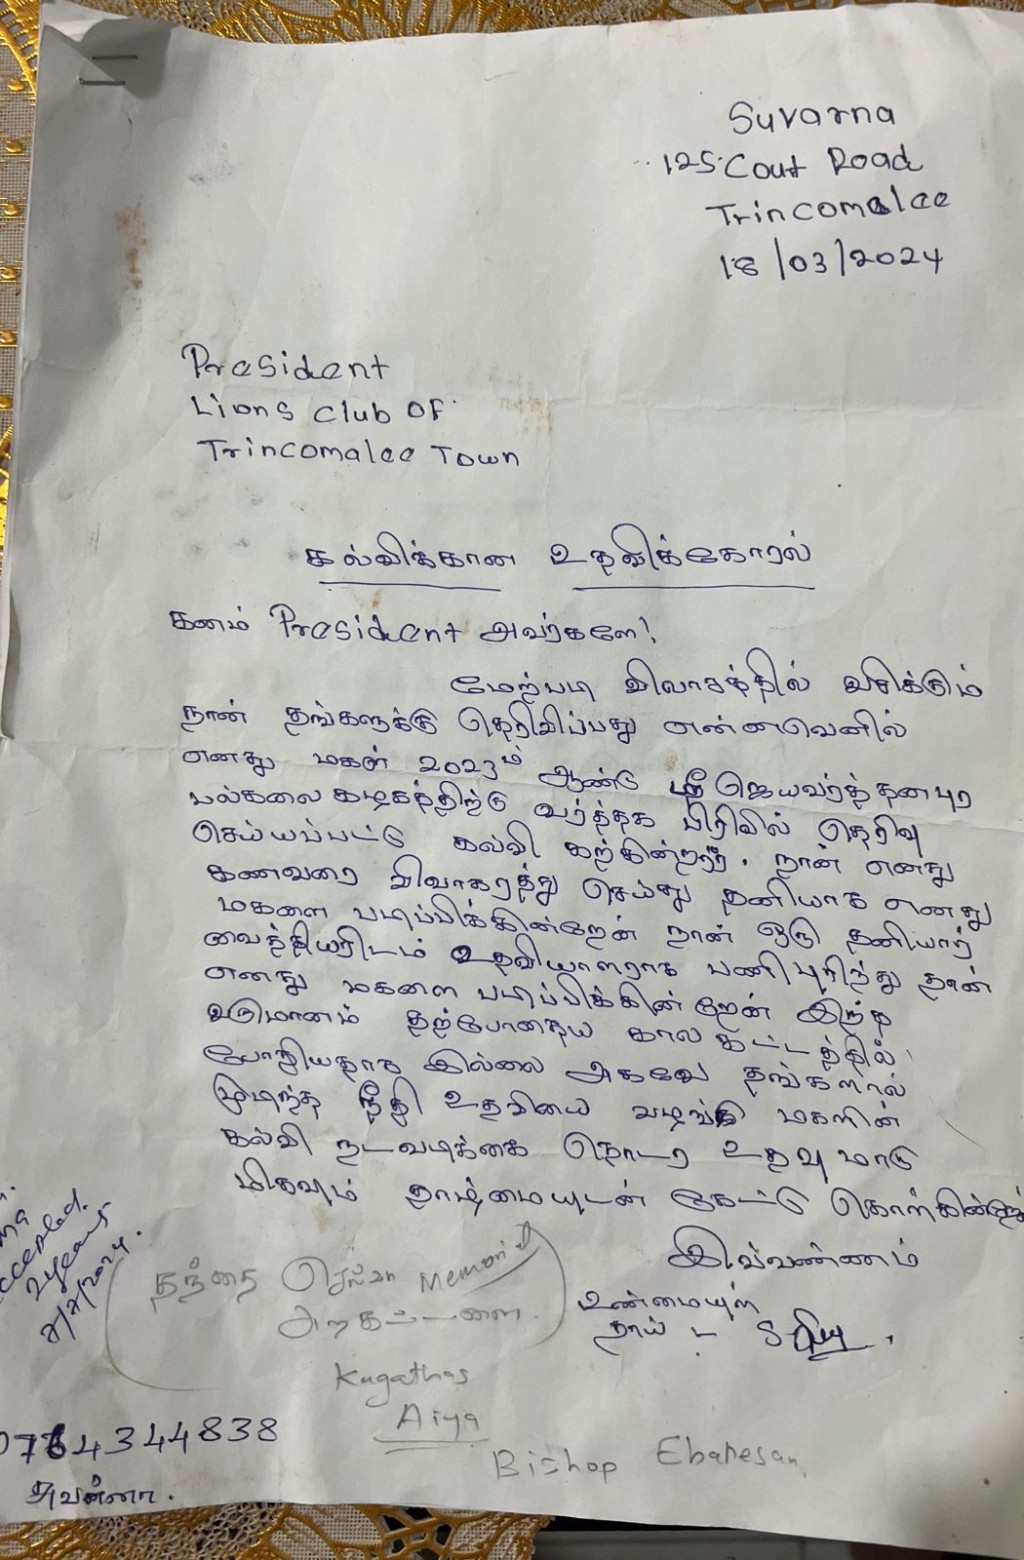 Suvarna
125 Cout Road
Trincomalee
18/03/2024
President
Lions Club OF
Trincomalee Town
கல்விக்கான உதவிக்கோரல்
கனம் President அவர்களே!
மேற்படி விலாசத்தில் வசிக்கும்
நான் தங்களுக்கு தெரிவிப்பது என்னவெனில்
எனது மகள் 2023ம் ஆண்டு ஸ்ரீ ஜெயவர்த்தனபுர
பல்கலைகழகத்திற்கு வர்த்தக பிரிவில் தெரிவு
செய்யப்பட்டு கல்வி கற்கின்றார். நான் எனது
கணவரை விவாகரத்து செய்து தனியாக எனது
மகளை படிப்பிக்கின்றேன் நான் ஒரு தனியார்
வைத்தியரிடம் உதவியாளராக பணிபுரிந்து தான்
எனது மகளை படிப்பிக்கின்றேன் இந்த
வருமானம் தற்போதைய காலகட்டத்தில்
போதியதாக இல்லை அகவே தங்களால்
முடிந்த நீதி உதவியை வழங்கி மகளின்
கல்வி நடவடிக்கை தொடர உதவுமாறு
மிகவும் தாழ்மையுடன் கேட்டு கொள்கின்றேன்
இவ்வண்ணம்
உண்மையுள்
தாய்
accepted.
2 years
தந்தை செல்வா Memorial
அறகட்டளை
Kugathas
Aiya
Bishop Ebanesan
0764344838
சுவர்ணா.